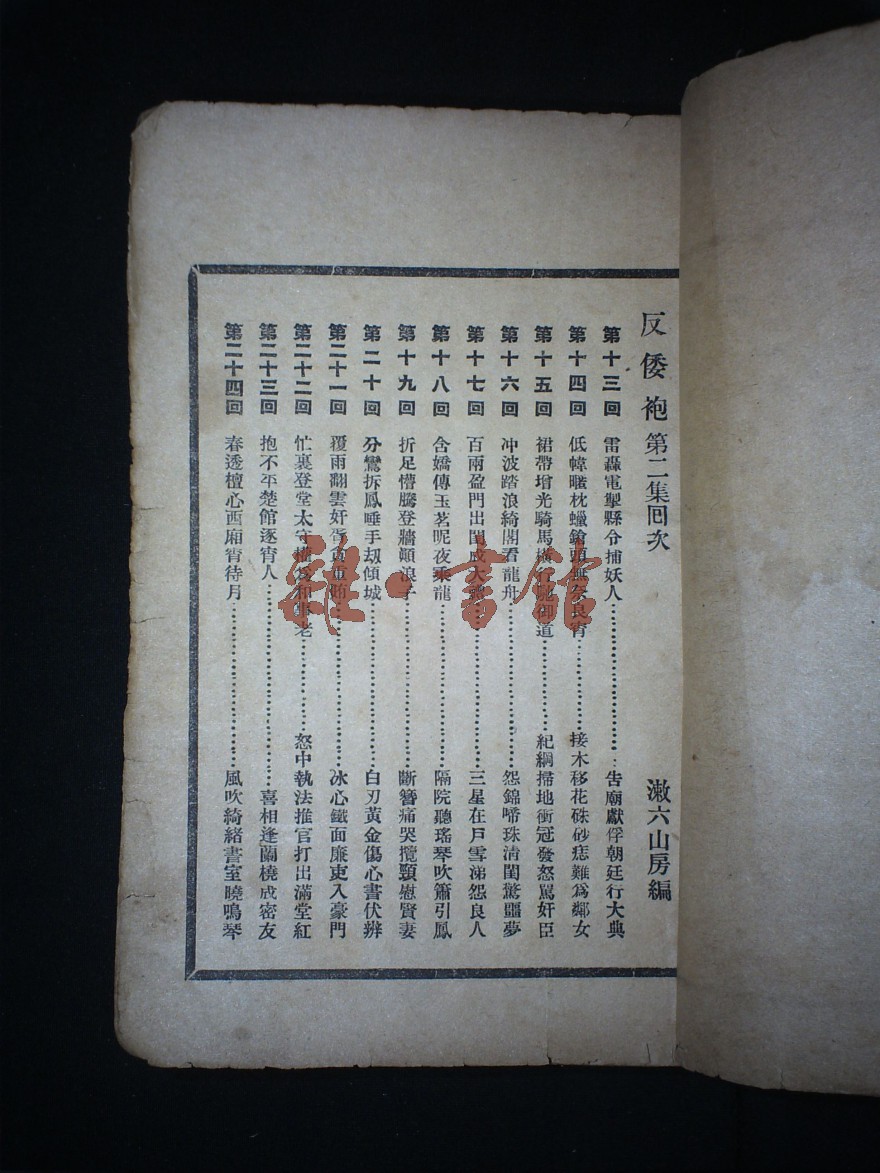 反倭袍第二集回次 漱六山房編
第十三回 雷轟電掣縣令捕妖人 告廟獻俘朝廷行大典
第十四回 低幃暱枕蠟鎗頭無奈良宵 接木移花硃砂痣難爲鄰女
第十五回 裙帶增光騎馬橫行馳御道 紀綱掃地衝冠發怒罵奸臣
第十六回 冲波踏浪綺閣看龍舟 怨錦啼珠清閨驚噩夢
第十七回 百兩盈門出閨成大禮 三星在戶雪涕怨良人
第十八回 含嬌傳玉茗昵夜乘龍 隔院聽瑤琴吹簫引鳳
第十九回 折足懵騰登牆顛浪子 斷簪痛哭攬頸慰賢妻
第二十回 分鸞拆鳳唾手刧傾城 白刃黃金傷心書伏辨
第二十一回 覆雨翻雲奸胥貪重賄 冰心鐵面廉吏入豪門
第二十二回 忙裏登堂太守權爲和事老 怒中執法推官打出滿堂紅
第二十三回 抱不平楚館逐宵人 喜相逢蘭橈成密友
第二十四回 春透檀心西廂宵待月 風吹綺緒書室曉鳴琴
雜·書館